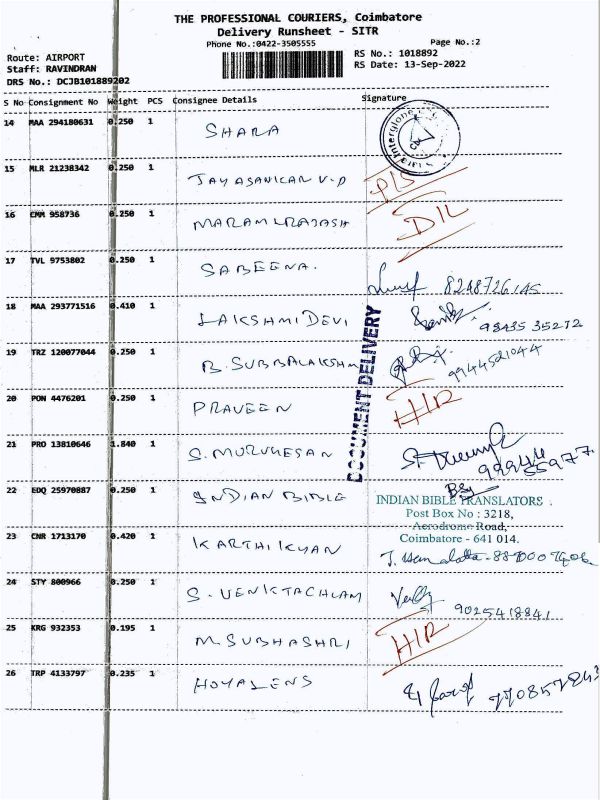 THE PROFESSIONAL COURIERS, Coimbatore
Delivery Runsheet - SITR
Phone No.:0422-3505555 Page No.:2
Route: AIRPORT RS No.: 1018892
Staff: RAVINDRAN RS Date: 13-Sep-2022
DRS No.: DCJB101889202
S No Consignment No Weight PCS Consignee Details Signature
14 MAA 294180631 0.250 1 SHARA
15 MLR 21238342 0.250 1 JAYASANKAR V.P
16 CMM 958736 0.250 1 D/L
17 TVL 9753802 0.250 1 SABEENA. 8248726145
18 MAA 293771516 0.410 1 LAKSHMI DEVI 98435 35272
19 TRZ 120077044 0.250 1 B. SUBBALAKSHM 9944521044
DOCUMENT DELIVERY
20 PON 4476201 0.250 1 PRAVEEN H/R
21 PRO 13810646 1.840 1 S. MURUGESAN 99944 55977
22 EDQ 25970887 0.250 1 INDIAN BIBLE INDIAN BIBLE TRANSLATORS
Post Box No : 3218,
Aerodrome Road,
Coimbatore - 641 014.
23 CNR 1713170 0.420 1 KARTHIKYAN
24 STY 800966 0.250 1 S. VENKTACHLAM 9025418841
25 KRG 932353 0.195 1 M. SUBHASHRI H/R
26 TRP 4133797 0.235 1 HOYALENS